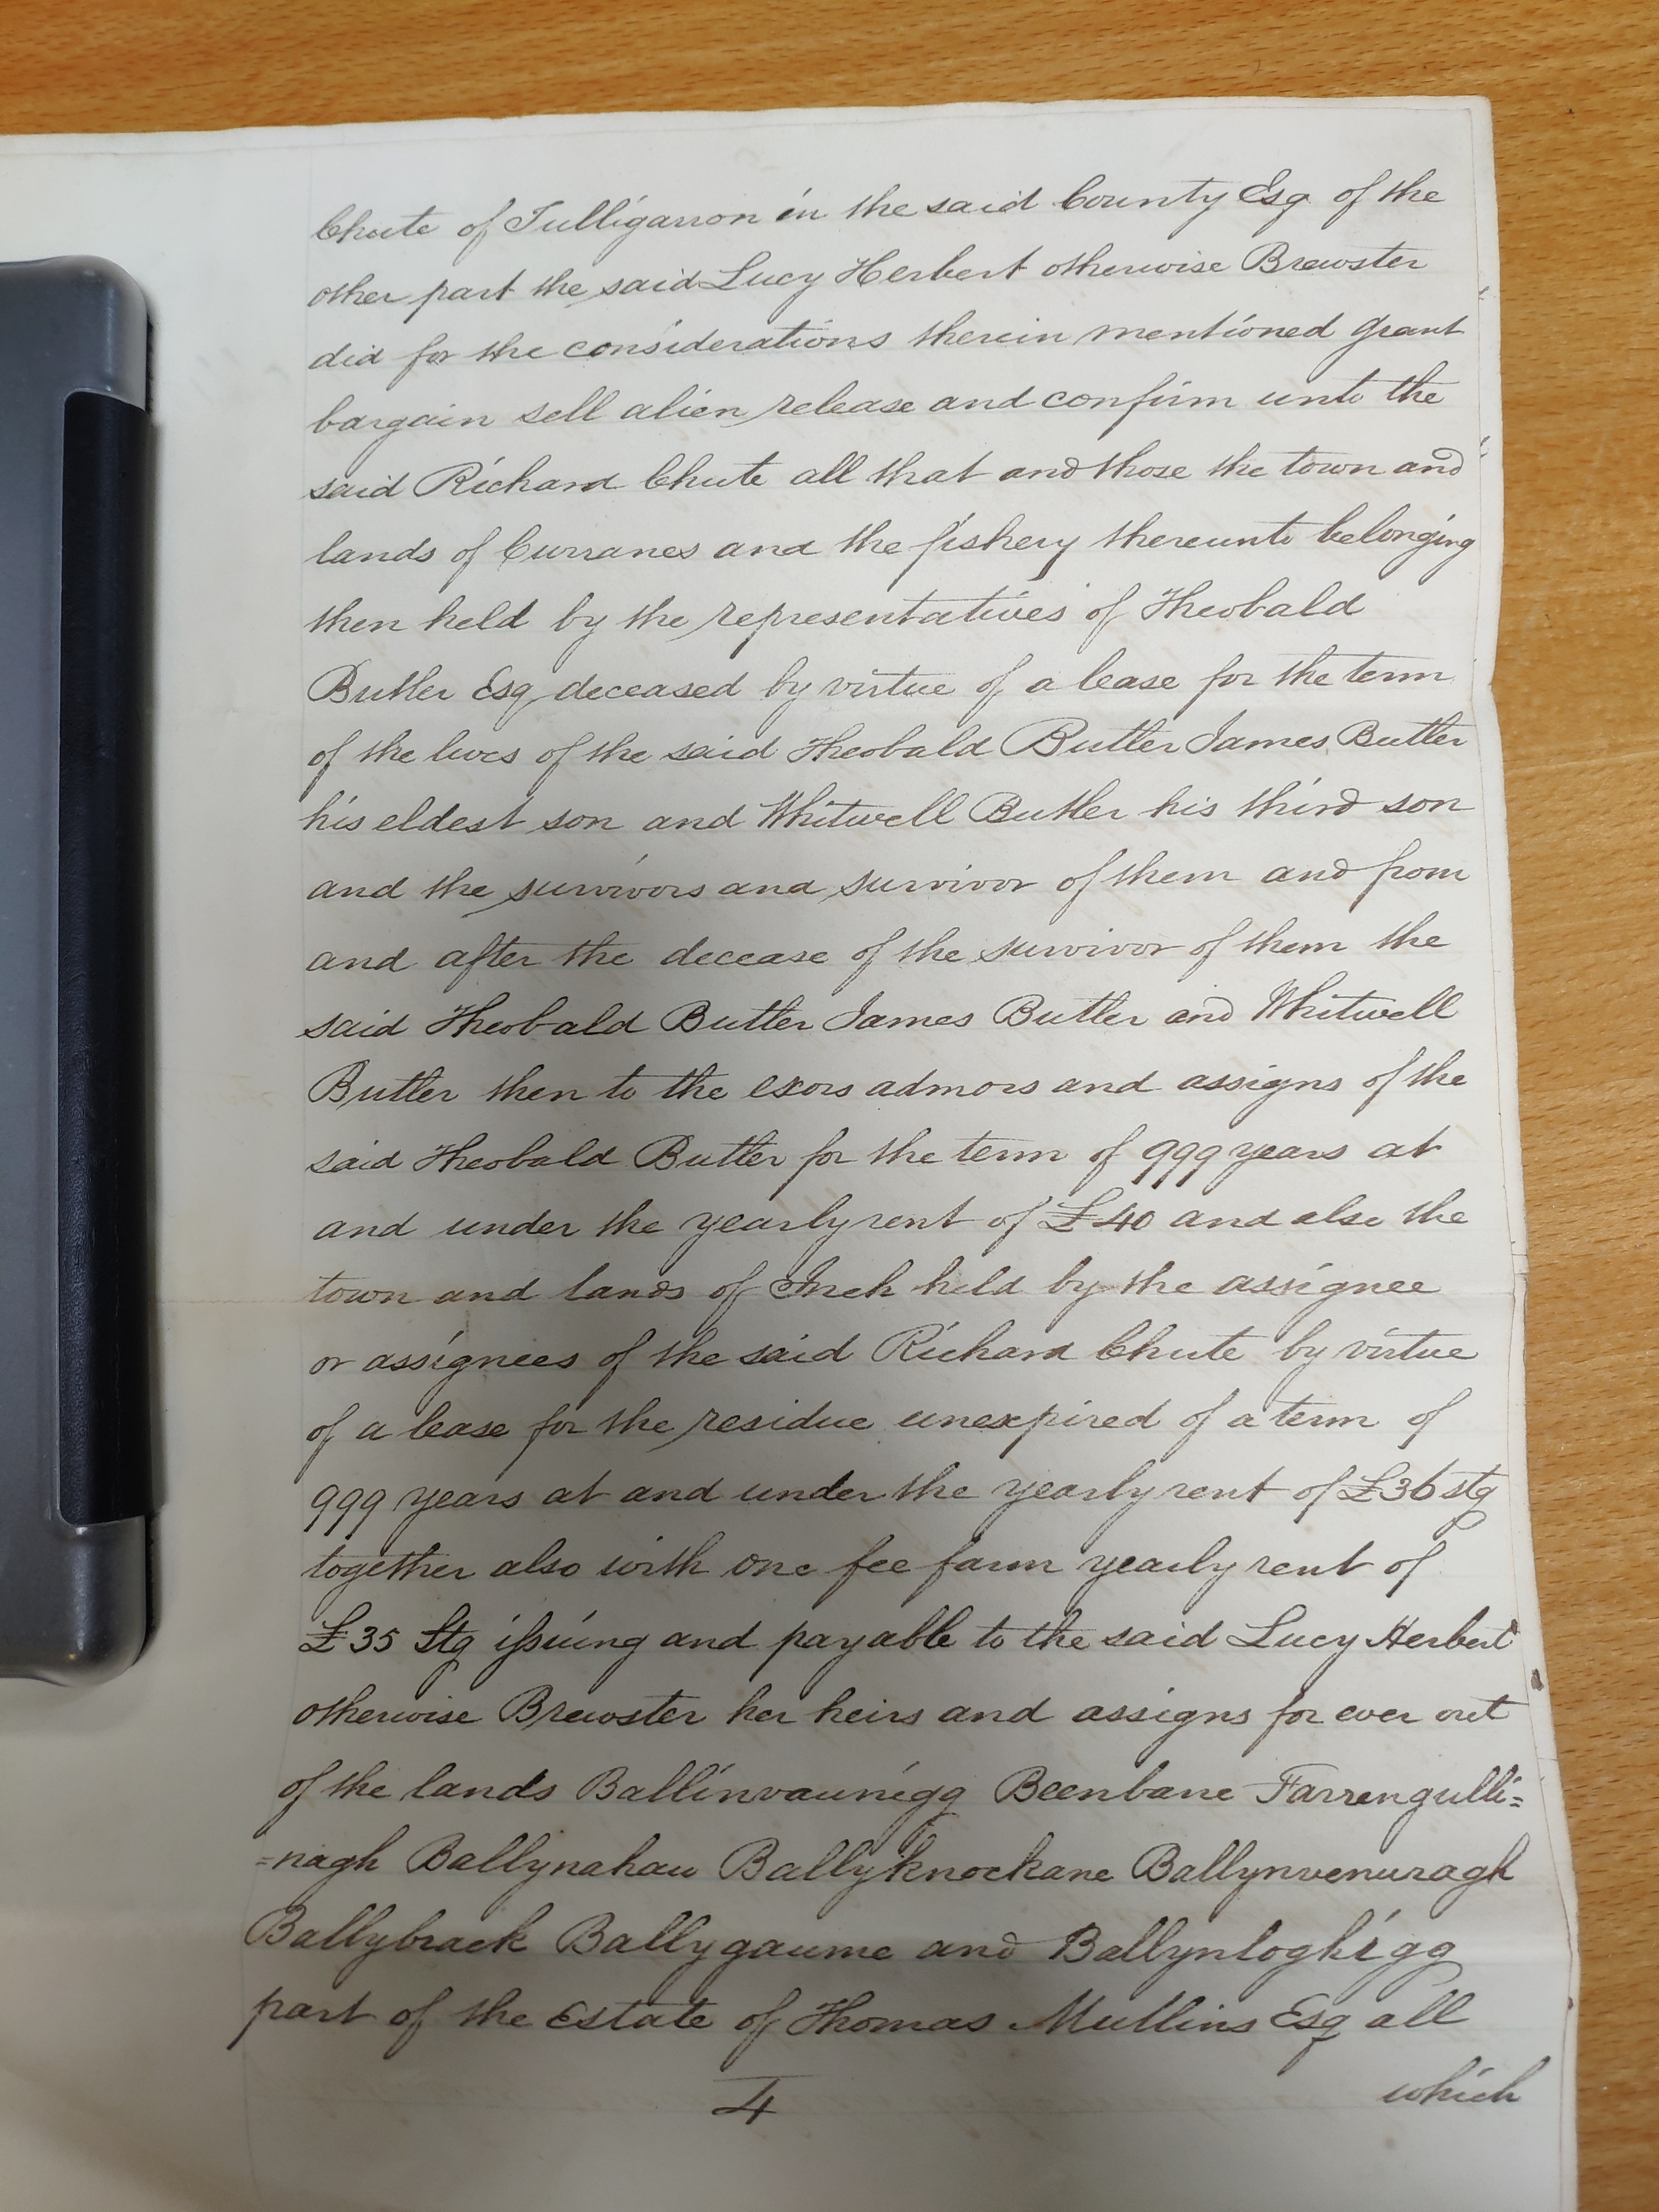 Chute of Tulligarron in the said County Esq of the
other part the said Lucy Herbert otherwise Brewster
did for the considerations therein mentioned grant
bargain sell alien release and confirm unto the
said Richard Chute all that and those the town and
lands of Curranes and the fishery thereunto belonging
then held by the representatives of Theobald
Butler Esq deceased by virtue of a lease for the term
of the lives of the said Theobald Butler James Butler
his eldest son and Whitwell Butler his third son
and the survivors and survivor of them and from
and after the decease of the survivor of them the
said Theobald Butler James Butler and Whitwell
Butler then to the exors admors and assigns of the
said Theobald Butler for the term of 999 years at
and under the yearly rent of £40 and also the
town and lands of Inch held by the assignee
or assignees of the said Richard Chute by virtue
of a lease for the residue unexpired of a term of
999 years at and under the yearly rent of £36 stg
together also with one fee farm yearly rent of
£35 Stg issuing and payable to the said Lucy Herbert
otherwise Brewster her heirs and assigns for ever out
of the lands Ballinvaunigg Beenbane Farrengulli=
=nagh Ballynahau Ballyknockane Ballynvenuragh
Ballybrack Ballygaume and Ballynloghigg
part of the Estate of Thomas Mullins Esq all
which
4